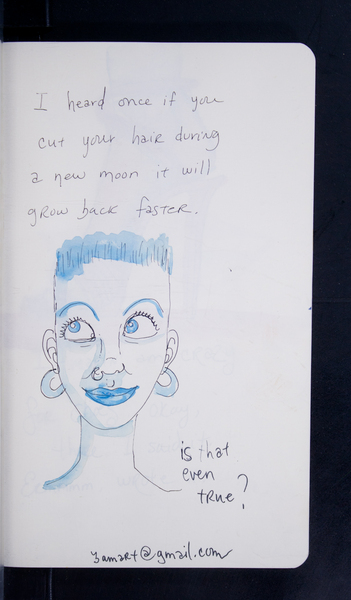 I heard once if you
cut your hair during
a new moon it will
grow back faster.
is that
even
true?
@gmail.com